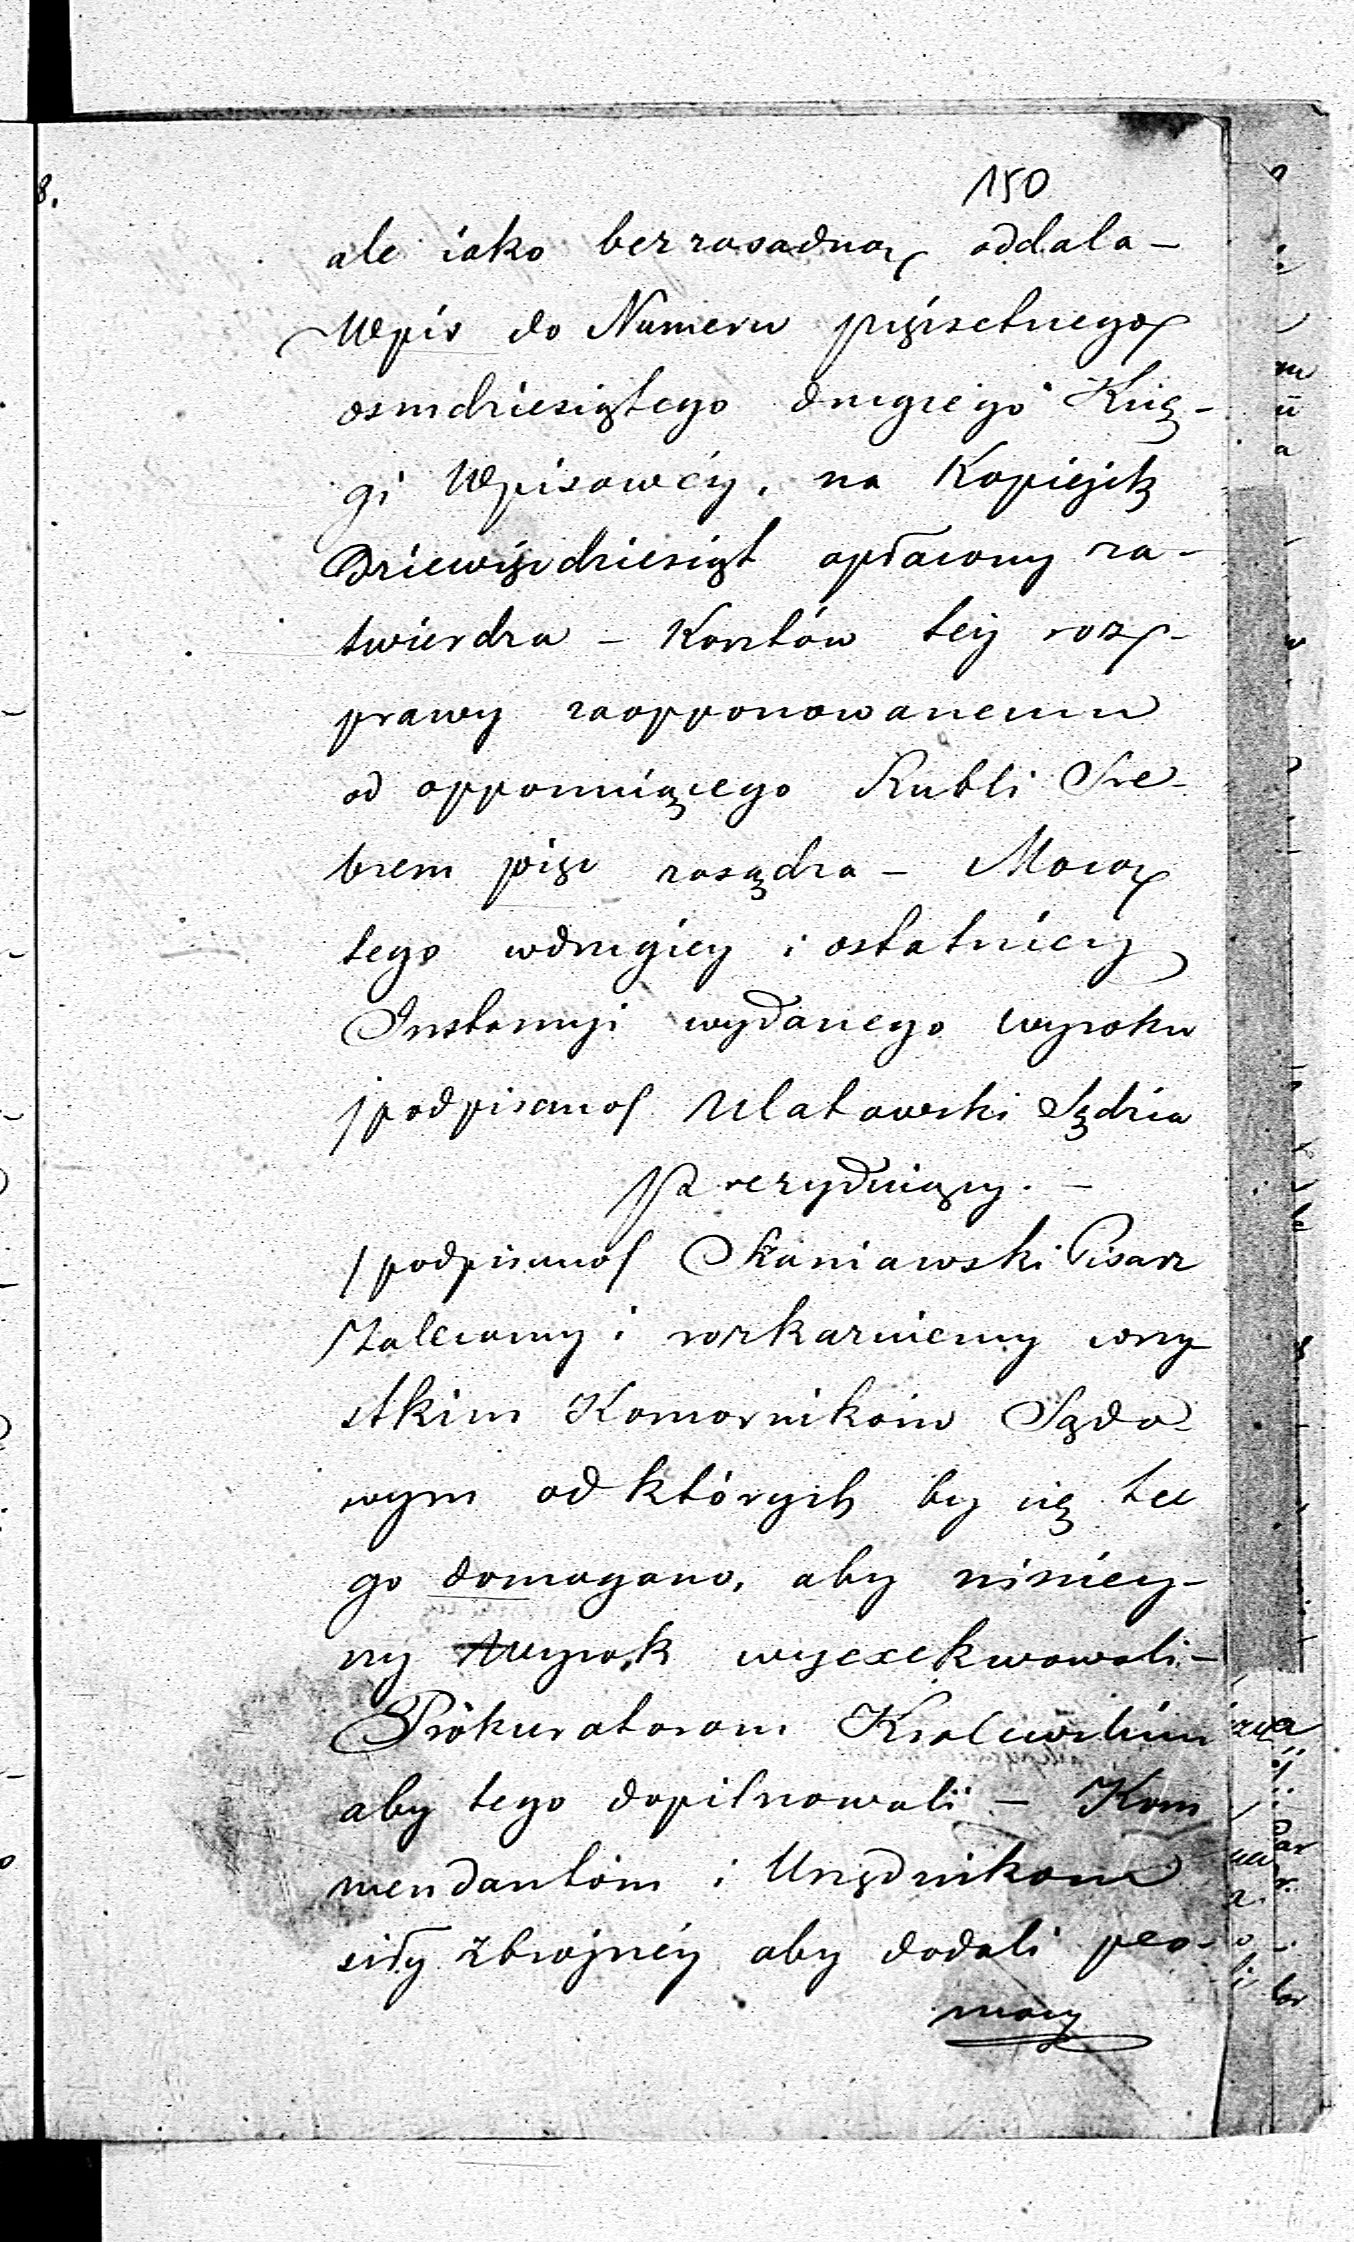 150
ale iako bezzasadną oddala –
Wpis do Numeru pięćsetnego
osmdziesiątego drugiego Księ-
gi Wpisowéy, na Kopiejek
Dziewięćdziesiąt opłacony za-
twierdza – Kosztów téj roz-
prawy zaopponowanemu
od opponuiącego Rubli Sre-
brem pięć zasądza – Mocą
tego wdrugiey i ostatniey
Instancyi wydanego wyroku
/podpisano/ Ulatowski Sędzia
Prezyduiący. –
/podpisano/ Skaniawski Pisarz
Zalecamy i rozkazuiemy wszy-
stkim Komornikom Sądo-
wym od których by się te
go domagano, aby niniey-
szy Wyrok wyexekwowali –
Prokuratorom Krolewskim
aby tego dopilnowali – Kom
mendantom i Urzędnikom
siły zbrojnéy aby dodali po-
mocy